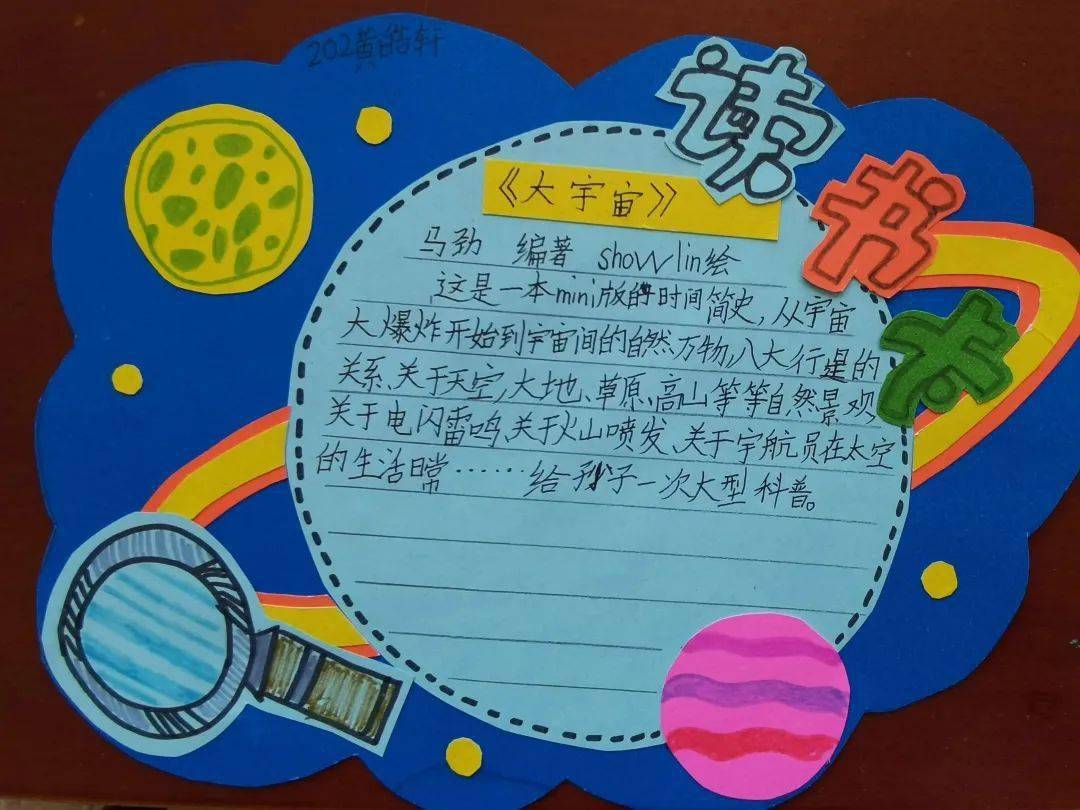 202黄皓轩
读书卡
《大宇宙》
马劲 编著 show lin绘
这是一本mini版的时间简史,从宇宙
大爆炸开始到宇宙间的自然万物,八大行星的
关系、关于天空,大地、草原、高山等等自然景观
关于电闪雷鸣、关于火山喷发、关于宇航员在太空
的生活日常……给孩子一次大型科普。